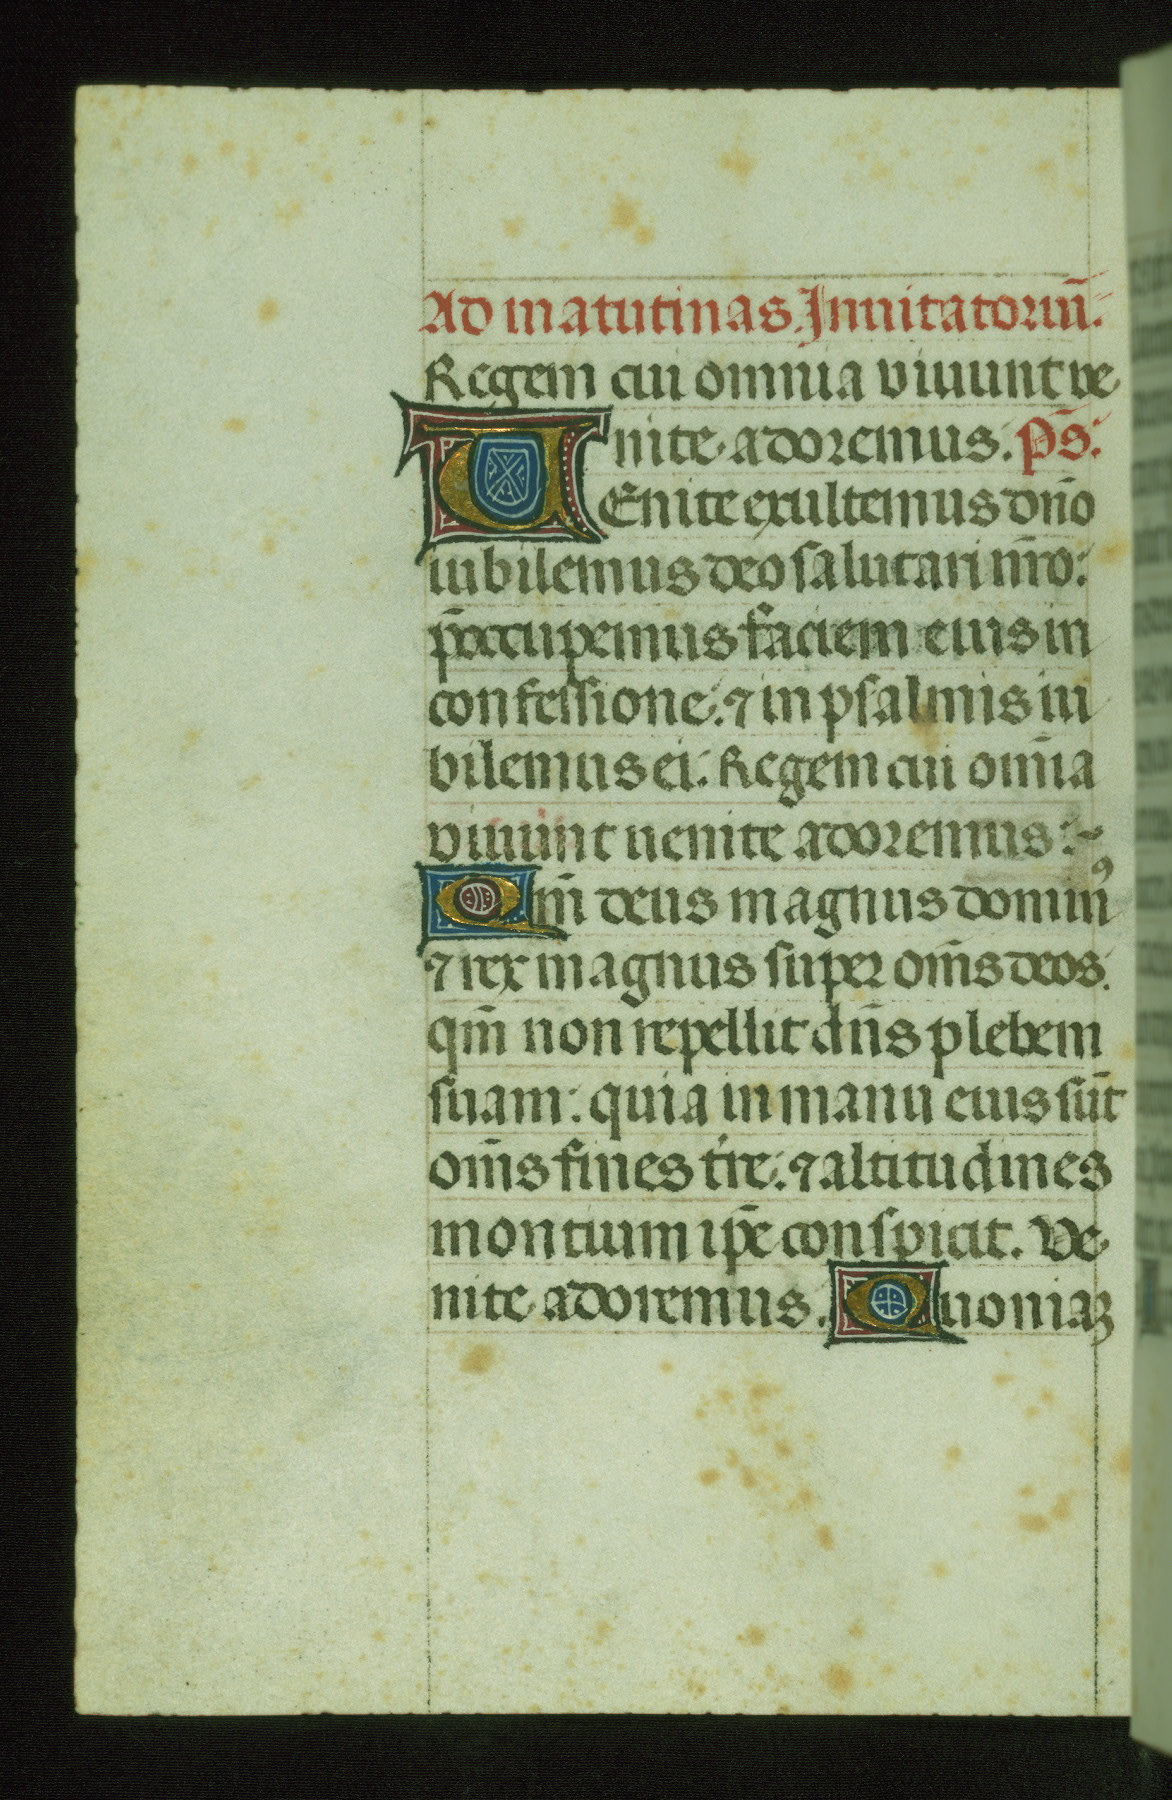 Ad matutinas. Inuitatoriū.
Regem cui omnia viuunt ve
nite adoremus. Ps̄.
VEnite exultemus dn̄o
iubilemus deo salutari nr̄o:
p̄occupemus faciem eius in
confessione. ⁊ in psalmis iu
bilemus ei. Regem cui om̄ia
viuunt uenite adoremus:~
Qm̄ deus magnus dominꝰ
⁊ rex magnus super om̄s deos.
qm̄ non repellit dn̄s plebem
suam: quia in manu eius sūt
om̄s fines tr̄e. ⁊ altitudines
montium ip̄e conspicit. Ve
nite adoremus. Quoniaꝫ